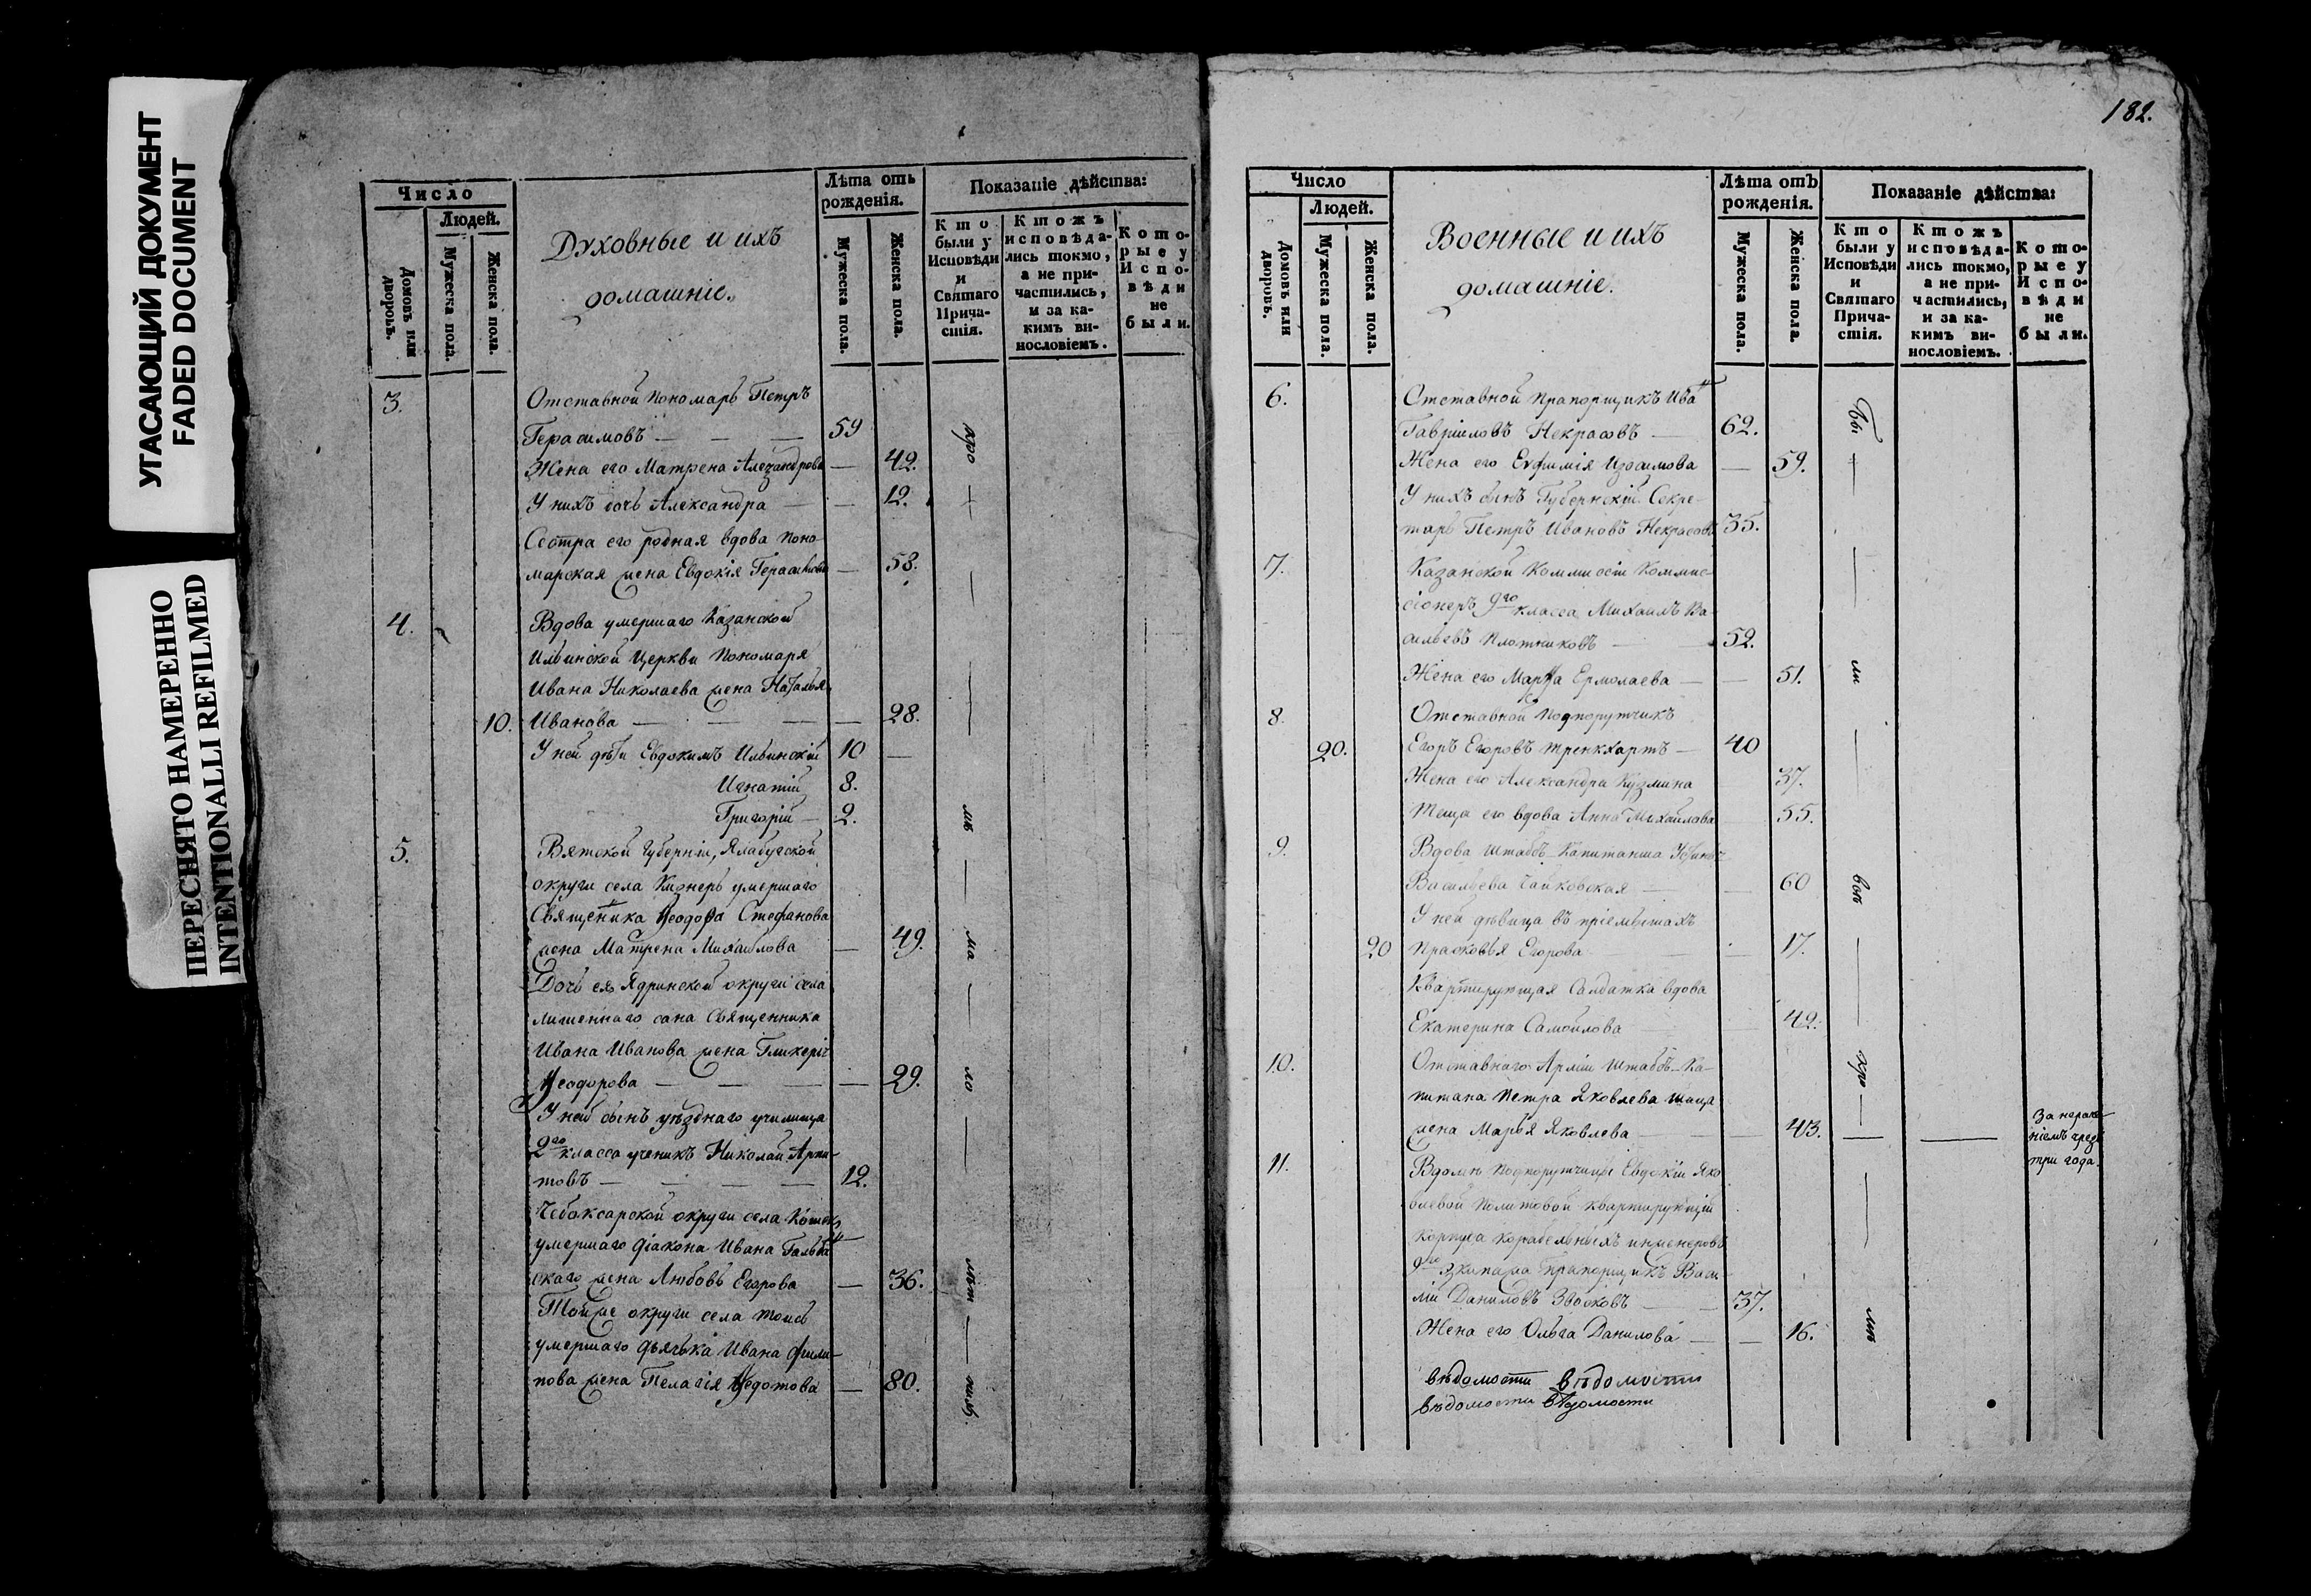 УГАСАЮЩИЙ ДОКУМЕНТ
FADED DOCUMENT
ПЕРЕСНЯТО НАМЕРЕННО
INTENTIONALLI REFILMED
Число
Людей.
Домовъ или дворовъ.
Мужеска пола.
Женска пола.
Духовные и ихъ
домашніе.
Лѣта отъ
рожденія.
Мужеска пола.
Женска пола.
Показаніе дѣйства:
Кто
были у
Исповѣди
и
Святаго
Прича-
стія.
Ктожъ
исповѣда-
лись токмо,
а не при-
частились,
и за ка-
кимъ ви-
нословіемъ.
Кото-
рые у
Испо-
вѣди
не
были.
3. Отставной Пономарь Петръ
Герасимовъ — — — 59
Жена его Матрена Александрова — 42.
У нихъ дочь Александра — — 12.
Сестра его родная вдова Поно-
марская жена Евдокія Герасимова — 58.
4. Вдова умершаго Казанской
Ильинской Церкви Пономаря
Ивана Николаева жена Наталья
10. Иванова — — — — 28.
У ней дѣти Евдокимъ Ильинскій 10 —
Игнатій 8.
Григорій — 2.
5. Вятской Губерніи, Ялабугской
округи села умершаго
Священника Ѳеодора Стефанова
жена Матрена Михайлова — 49.
Дочь ея Ядринской округи села
лишеннаго сана Священника
Ивана Иванова жена Гликерія
Ѳеодорова — — — — 29.
У ней сынъ уѣзднаго училища
2го класса ученикъ Николай
товъ — — — — 12.
Чебоксарской округи села
умершаго діакона Ивана
скаго жена Любовь Егорова — 36.
Тойже округи села
умершаго дьячька Ивана Фили-
пова жена Пелагія Ѳедотова — 80.
182.
Число
Людей.
Домовъ или дворовъ.
Мужеска пола.
Женска пола.
Военные и ихъ
домашніе.
Лѣта отъ
рожденія.
Мужеска пола.
Женска пола.
Показаніе дѣйства:
Кто
были у
Исповѣди
и
Святаго
Прича-
стія.
Ктожъ
исповѣда-
лись токмо,
а не при-
частились,
и за ка-
кимъ ви-
нословіемъ.
Кото-
рые у
Испо-
вѣди
не
были.
6. Отставной Прапорщикъ Иванъ
Гавріиловъ Некрасовъ — 62.
Жена его Евфимія Изосимова — 59.
У нихъ сынъ Губернскій Секре-
тарь Петръ Ивановъ Некрасовъ 35.
7. Казанской Коммисіи Коммис-
сіонеръ 9го класса Михаилъ Ва-
сильевъ Плотниковъ — 52.
Жена его Марѳа Ермолаева — — 51.
8. Отставной Подпорутчикъ
20. Егоръ Егоровъ Тренкхартъ — 40
Жена его Александра Кузмина 37.
Теща его вдова Анна Михайлова 55.
9. Вдова Штабсъ-Капитанша
Васильева Чайковская — — 60
У ней дѣвица въ пріемышахъ
20 Прасковья Егорова — 17.
Квартирующая Салдатка вдова
Екатерина Самойлова 42.
10. Отставнаго Арміи Штабсъ-Ка-
питана Петра Яковлева
жена Марья Яковлева — — 43. — —
За нераде-
ніемъ чрезъ
три года.
11. Вдомѣ Подпорутчицы Евдокіи Яко-
влевой Политовой квартирующій
корпуса корабельныхъ инженеровъ
9го экипажа Прапорщикъ Васи-
лій Даниловъ Звоковъ — 37.
Жена его Ольга Данилова — — 16.
вѣдомости вѣдомости
вѣдомости вѣдомости